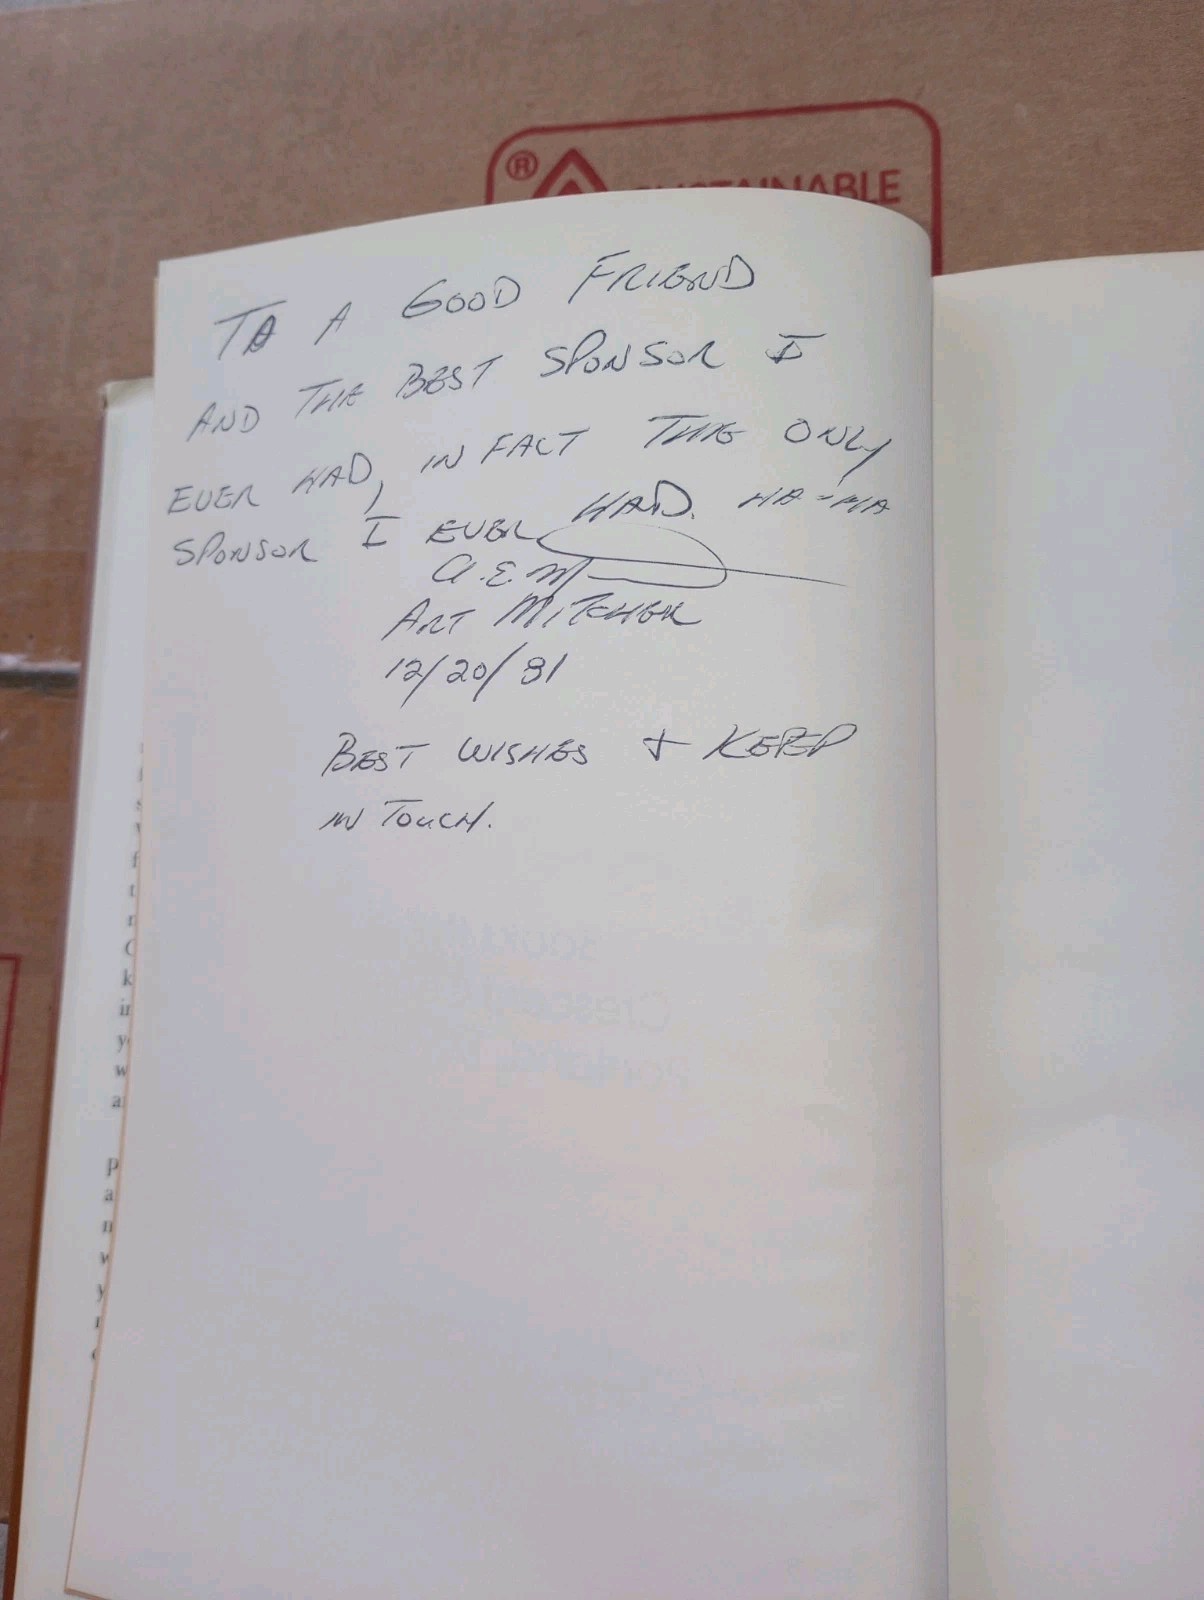 ®
SUSTAINABLE
TO A GOOD FRIEND
AND THE BEST SPONSOR I
EVER HAD, IN FACT THE ONLY
SPONSOR I EVER HAD. HA-HA
A.E.M
ART MITCHER
12/20/81
BEST WISHES & KEEP
IN TOUCH.